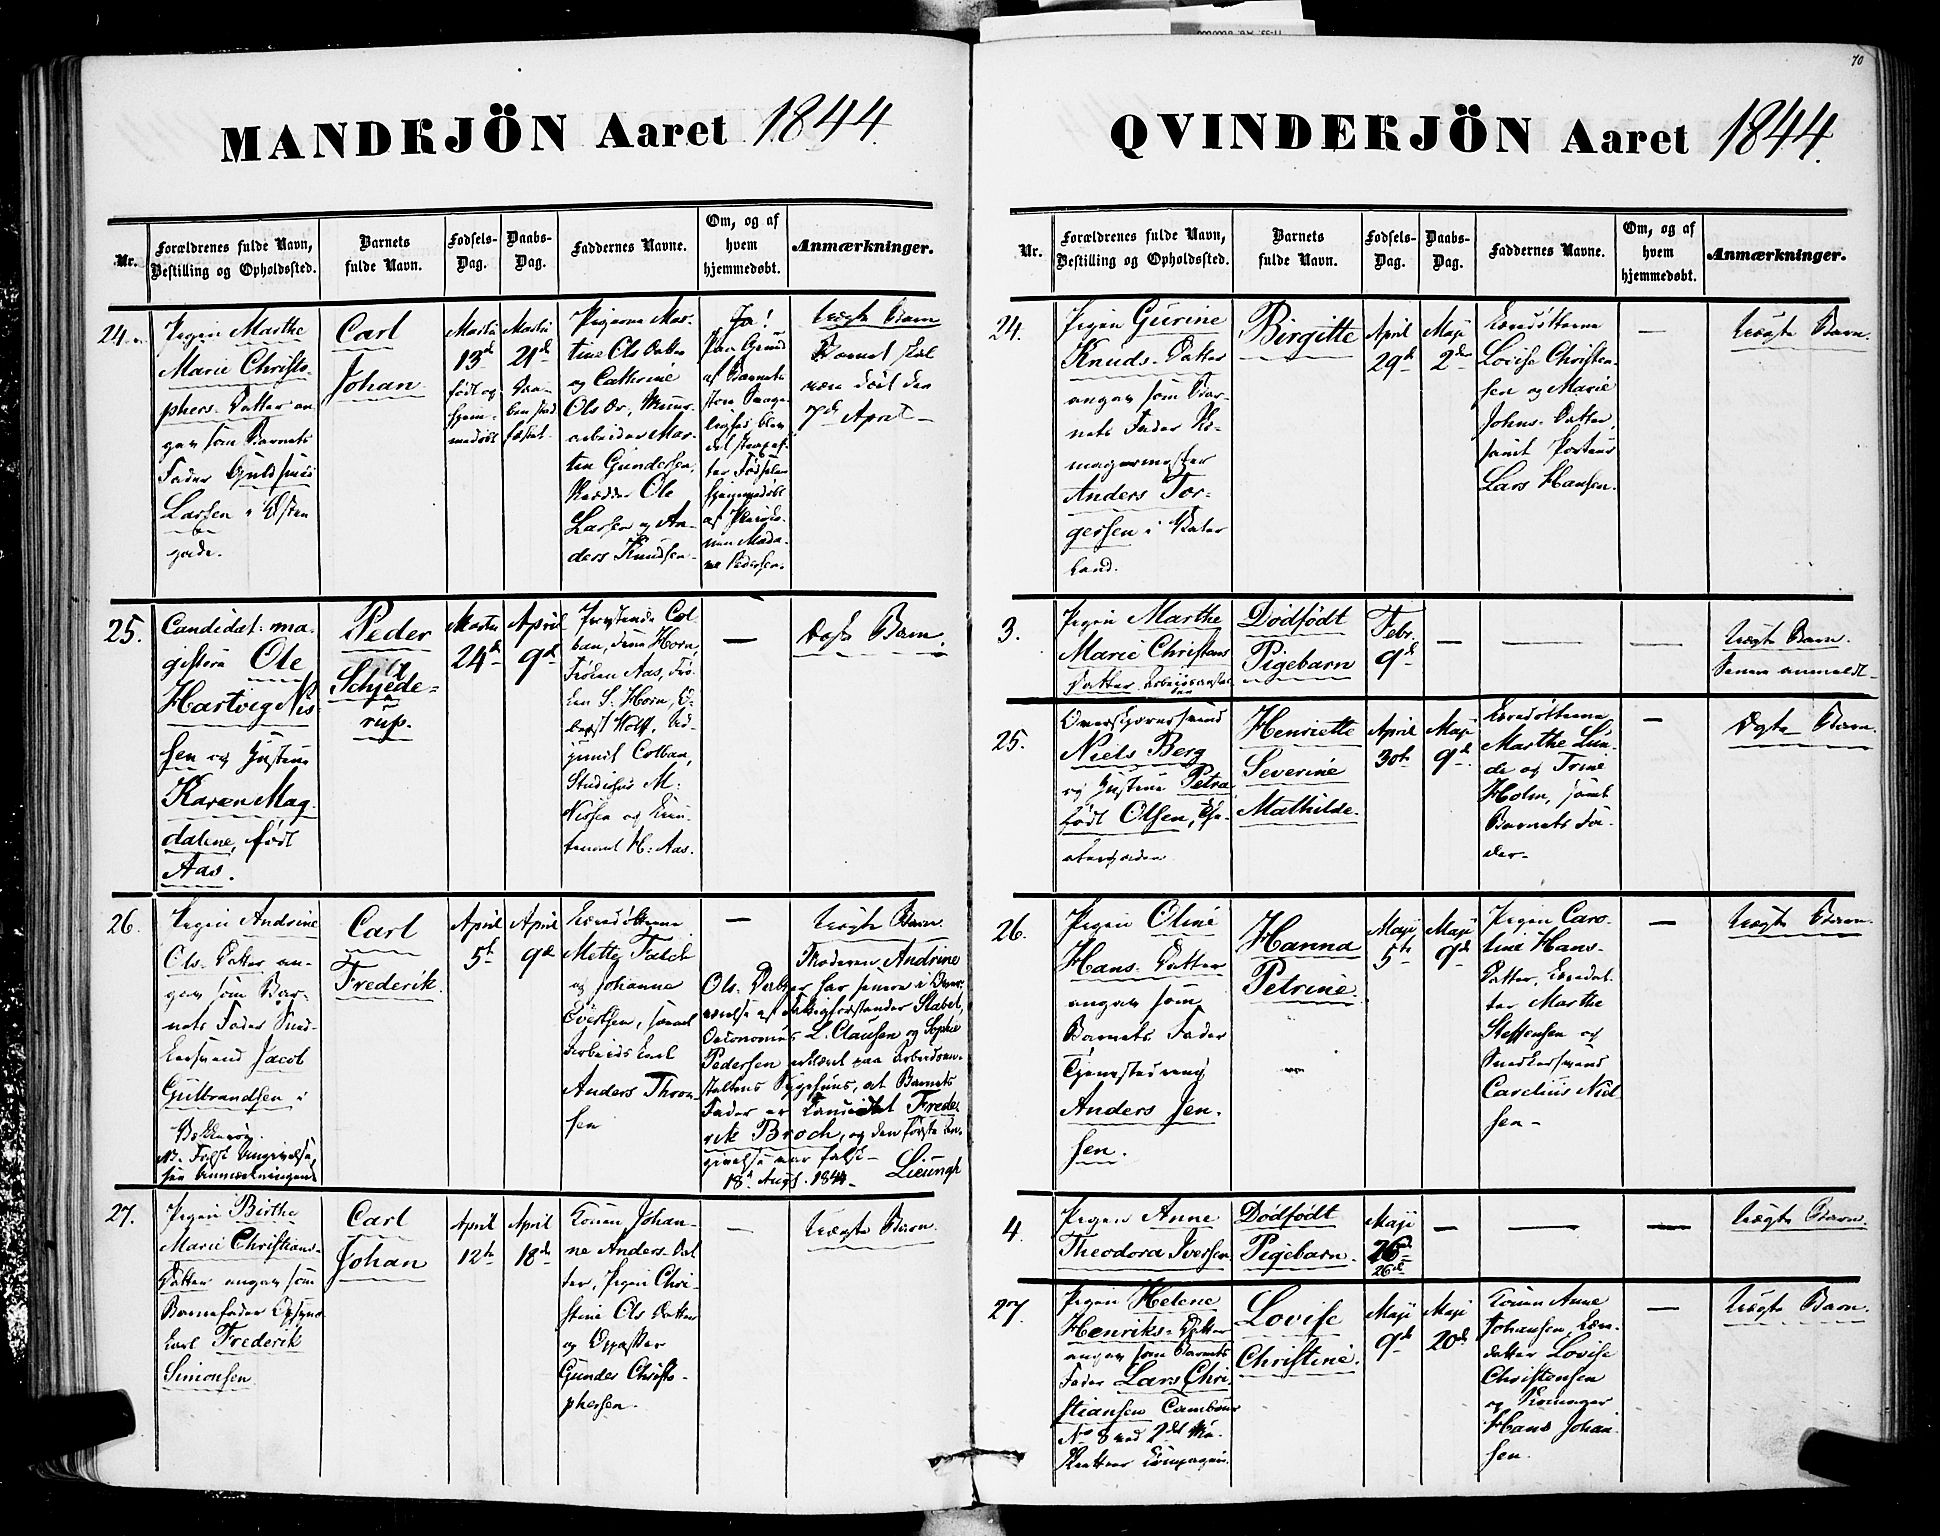 70
MANDKJÖN Aaret 1844.
Nr.
Forældrenes fulde Navn,
Bestilling og Opholdssted.
Barnets
fulde Navn.
Fødsels-
Dag.
Daabs-
Dag.
Faddernes Navne.
Om, og af
hvem
hjemmedøbt.
Anmærkninger.
24.
Pigen Marthe
Marie Christo-
phers-Datter an-
gav som Barnets
Fader Guldsmed
Larsen i
gade.
Carl
Johan
Martii
13de
født og
hjem-
medøbt
Martii
21de
Daa-
ben
Pigerne Mar-
tine Ols Datter
og Cathrine
Ols Dr, Muur-
arbeider Mar-
tin Gundersen,
Skrædder Ole
Larsen og An-
ders Knudsen
Ja!
Paa Grund
af Barnets
store Svage-
lighed blev
det strax ef-
ter Fødselen
hjemmedøbt
af
Mada-
me Pedersen.
Uægte Barn
Barnet skal
være død den
7de April
25.
Candidat: ma-
gisterii Ole
Hartvig Nis-
sen og Hustrue
Karen Mag-
dalene, født
Aas.
Peder
Schjelde-
rup.
Martii
24de
April
9de
Col-
ban, Horn,
Frøken Aas, Frø-
ken S. Horn, O-
berst Wolff,
Colban,
Studiosus M.
Nissen og
H: Aas.
—
Ægte Barn
26.
Pigen Andrine
Ols-Datter an-
gav som Bar-
nets Fader Sned-
kersvend Jacob
Gulbrandsen i
NB. Falsk Angivelse,
see Anmærkningen
Carl
Frederik
April
5te
April
9de
Læredøttrene
Mette Falch
og Johanne
Evertsen, samt
Arbeids Karl
Anders Thron-
sen
—
Uægte Barn
Moderen Andrine
Ols-Datter har senere i Overvær-
værelse af Fattigforstander Stabel,
Oeconomus L. Clausen og Sophie
Pedersen erklæret paa Arbeidsan-
staltens Sygehuus, at Barnets
Fader er Candidat Frede-
rik Broch, og den første An-
givelse var falsk
18de Augs. 1844. Lieungh
27.
Pigen Birthe
Marie Christians-
Datter angav som
Barnefader Opsyns-
karl Frederik
Simonsen
Carl
Johan
April
12te
April
18de
Konen Johan-
ne Anders-Dat-
ter, Pigen Chri-
stine Ols Datter
og Opasser
Gunder Christo-
phersen.
—
Uægte Barn
QVINDEKJÖN Aaret 1844.
Nr.
Forældrenes fulde Navn,
Bestilling og Opholdssted.
Barnets
fulde Navn.
Fødsels-
Dag.
Daabs-
Dag.
Faddernes Navne.
Om, og af
hvem
hjemmedøbt.
Anmærkninger.
24.
Pigen Gurine
Knuds-Datter
angav som Bar-
nets Fader Sko-
magermester
Anders Tor-
gersen i Vater
Land.
Birgitte
April
29de
Maji
2den
Læredøttrene
Lovise Christen-
sen og Marie
Johns-Datter,
samt Porteur
Lars Hansen.
—
Uægte Barn.
3.
Pigen Marthe
Marie Christians
Datter, Arbeidsanstal-
ten
Dødfødt
Pigebarn
Febr.
9de
—
—
—
Uægte Barn.
Senere anmeldt
25.
Overskjærersvend
Niels Berg
og Hustrue Petra
født Olsen,
Henriette
Severine
Mathilde.
April
30te
Maji
9de
Læredøttrene
Marthe Lun-
de og Trine
Holm, samt
Barnets Fa-
der.
—
Ægte Barn.
26.
Pigen Oline
Hans-Datter
angav som
Barnets Fader
Tjenestedreng
Anders Jen-
sen.
Hanna
Petrine
Maji
5te
Maji
9de
Pigen Caro-
line Hans-
Datter, Læredat-
ter Marthe
Steffensen og
Snedkersvend
Carelius Niel-
sen
—
Uægte Barn
4.
Pigen Anne
Theodora Iversen
Dødfødt
Pigebarn.
Maji
26de
26de
—
—
—
Uægte Barn
27.
Pigen Helene
Henriks-Datter
angav som Barnets
Fader Lars Chri-
stiansen Tambour
No 8 ved 2det Mu-
sketteer Compagnie.
Lovise
Christine.
Maji
9de
Maji
20de
Konen Anne
Johansen, Lære-
datter Lovise
Christensen
og
Hans Johan-
sen.
—
Uægte Barn